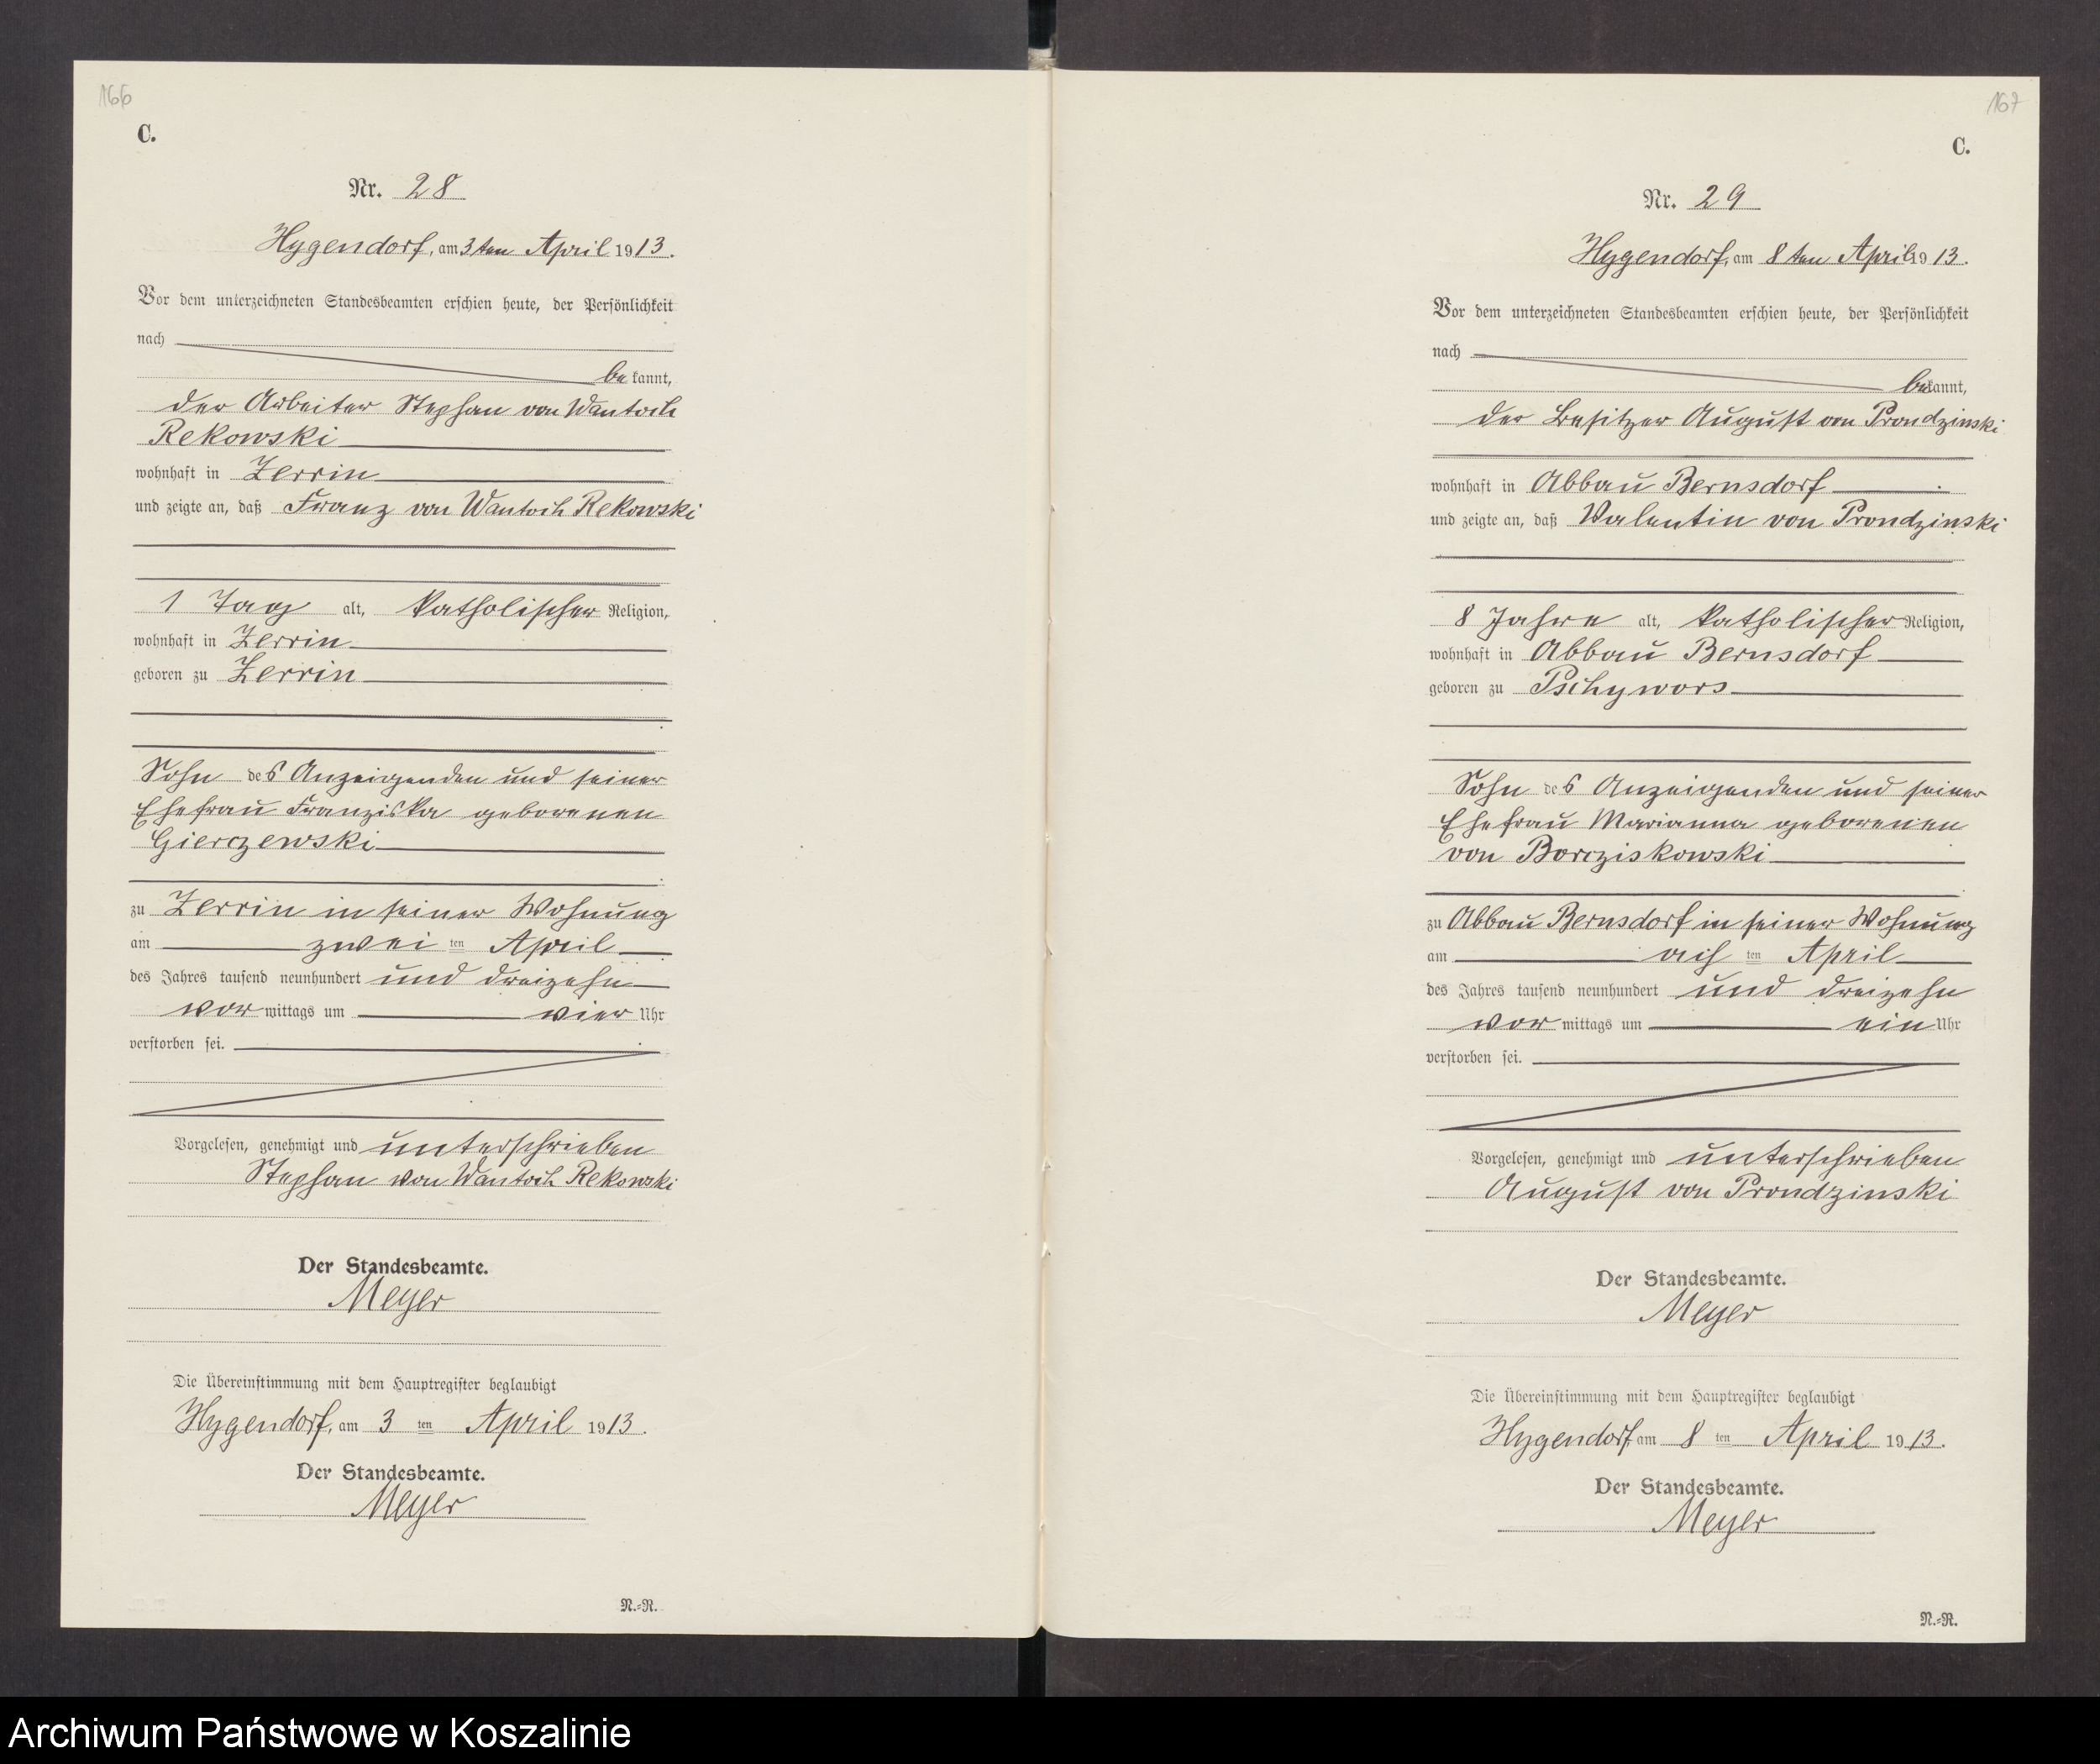 166
C.
Nr. 28
Hygendorf, am 3ten April 1913.
Vor dem unterzeichneten Standesbeamten erschien heute, der Persönlichkeit
nach
bekannt,
der Arbeiter Stephan von Wantoch
Rekowski
wohnhaft in Zerrin
und zeigte an, daß Franz von Wantoch Rekowski
1 Tag alt, katholischer Religion,
wohnhaft in Zerrin
geboren zu Zerrin
Sohn des Anzeigenden und seiner
Ehefrau Franziska geborenen
Gierczewski
zu Zerrin in seiner Wohnung
am zwei ten April
des Jahres tausend neunhundert und dreizehn
vor mittags um vier Uhr
verstorben sei.
Vorgelesen, genehmigt und unterschrieben
Stephan von Wantoch Rekowski
Der Standesbeamte.
Meyer
Die Übereinstimmung mit dem Hauptregister beglaubigt
Hygendorf, am 3 ten April 1913.
Der Standesbeamte.
Meyer
N.=R.
167
C.
Nr. 29
Hygendorf, am 8ten April 1913.
Vor dem unterzeichneten Standesbeamten erschien heute, der Persönlichkeit
nach
bekannt,
der Besitzer August von Prondzinski
wohnhaft in Abbau Bernsdorf
und zeigte an, daß Valentin von Prondzinski
8 Jahre alt, katholischer Religion,
wohnhaft in Abbau Bernsdorf
geboren zu Pschywors
Sohn des Anzeigenden und seiner
Ehefrau Marianna geborenen
von Borcziskowski
zu Abbau Bernsdorf in seiner Wohnung
am ach ten April
des Jahres tausend neunhundert und dreizehn
vor mittags um ein Uhr
verstorben sei.
Vorgelesen, genehmigt und unterschrieben
August von Prondzinski
Der Standesbeamte.
Meyer
Die Übereinstimmung mit dem Hauptregister beglaubigt
Hygendorf, am 8 ten April 1913.
Der Standesbeamte.
Meyer
N.=R.
Archiwum Państwowe w Koszalinie